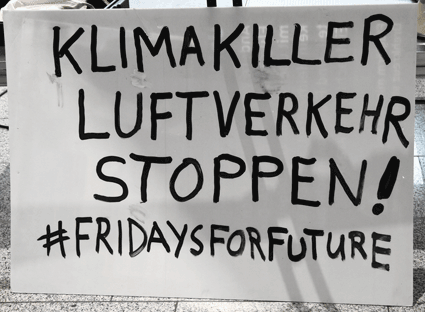 KLIMAKILLER
LUFTVERKEHR
STOPPEN!
#FRIDAYSFORFUTURE